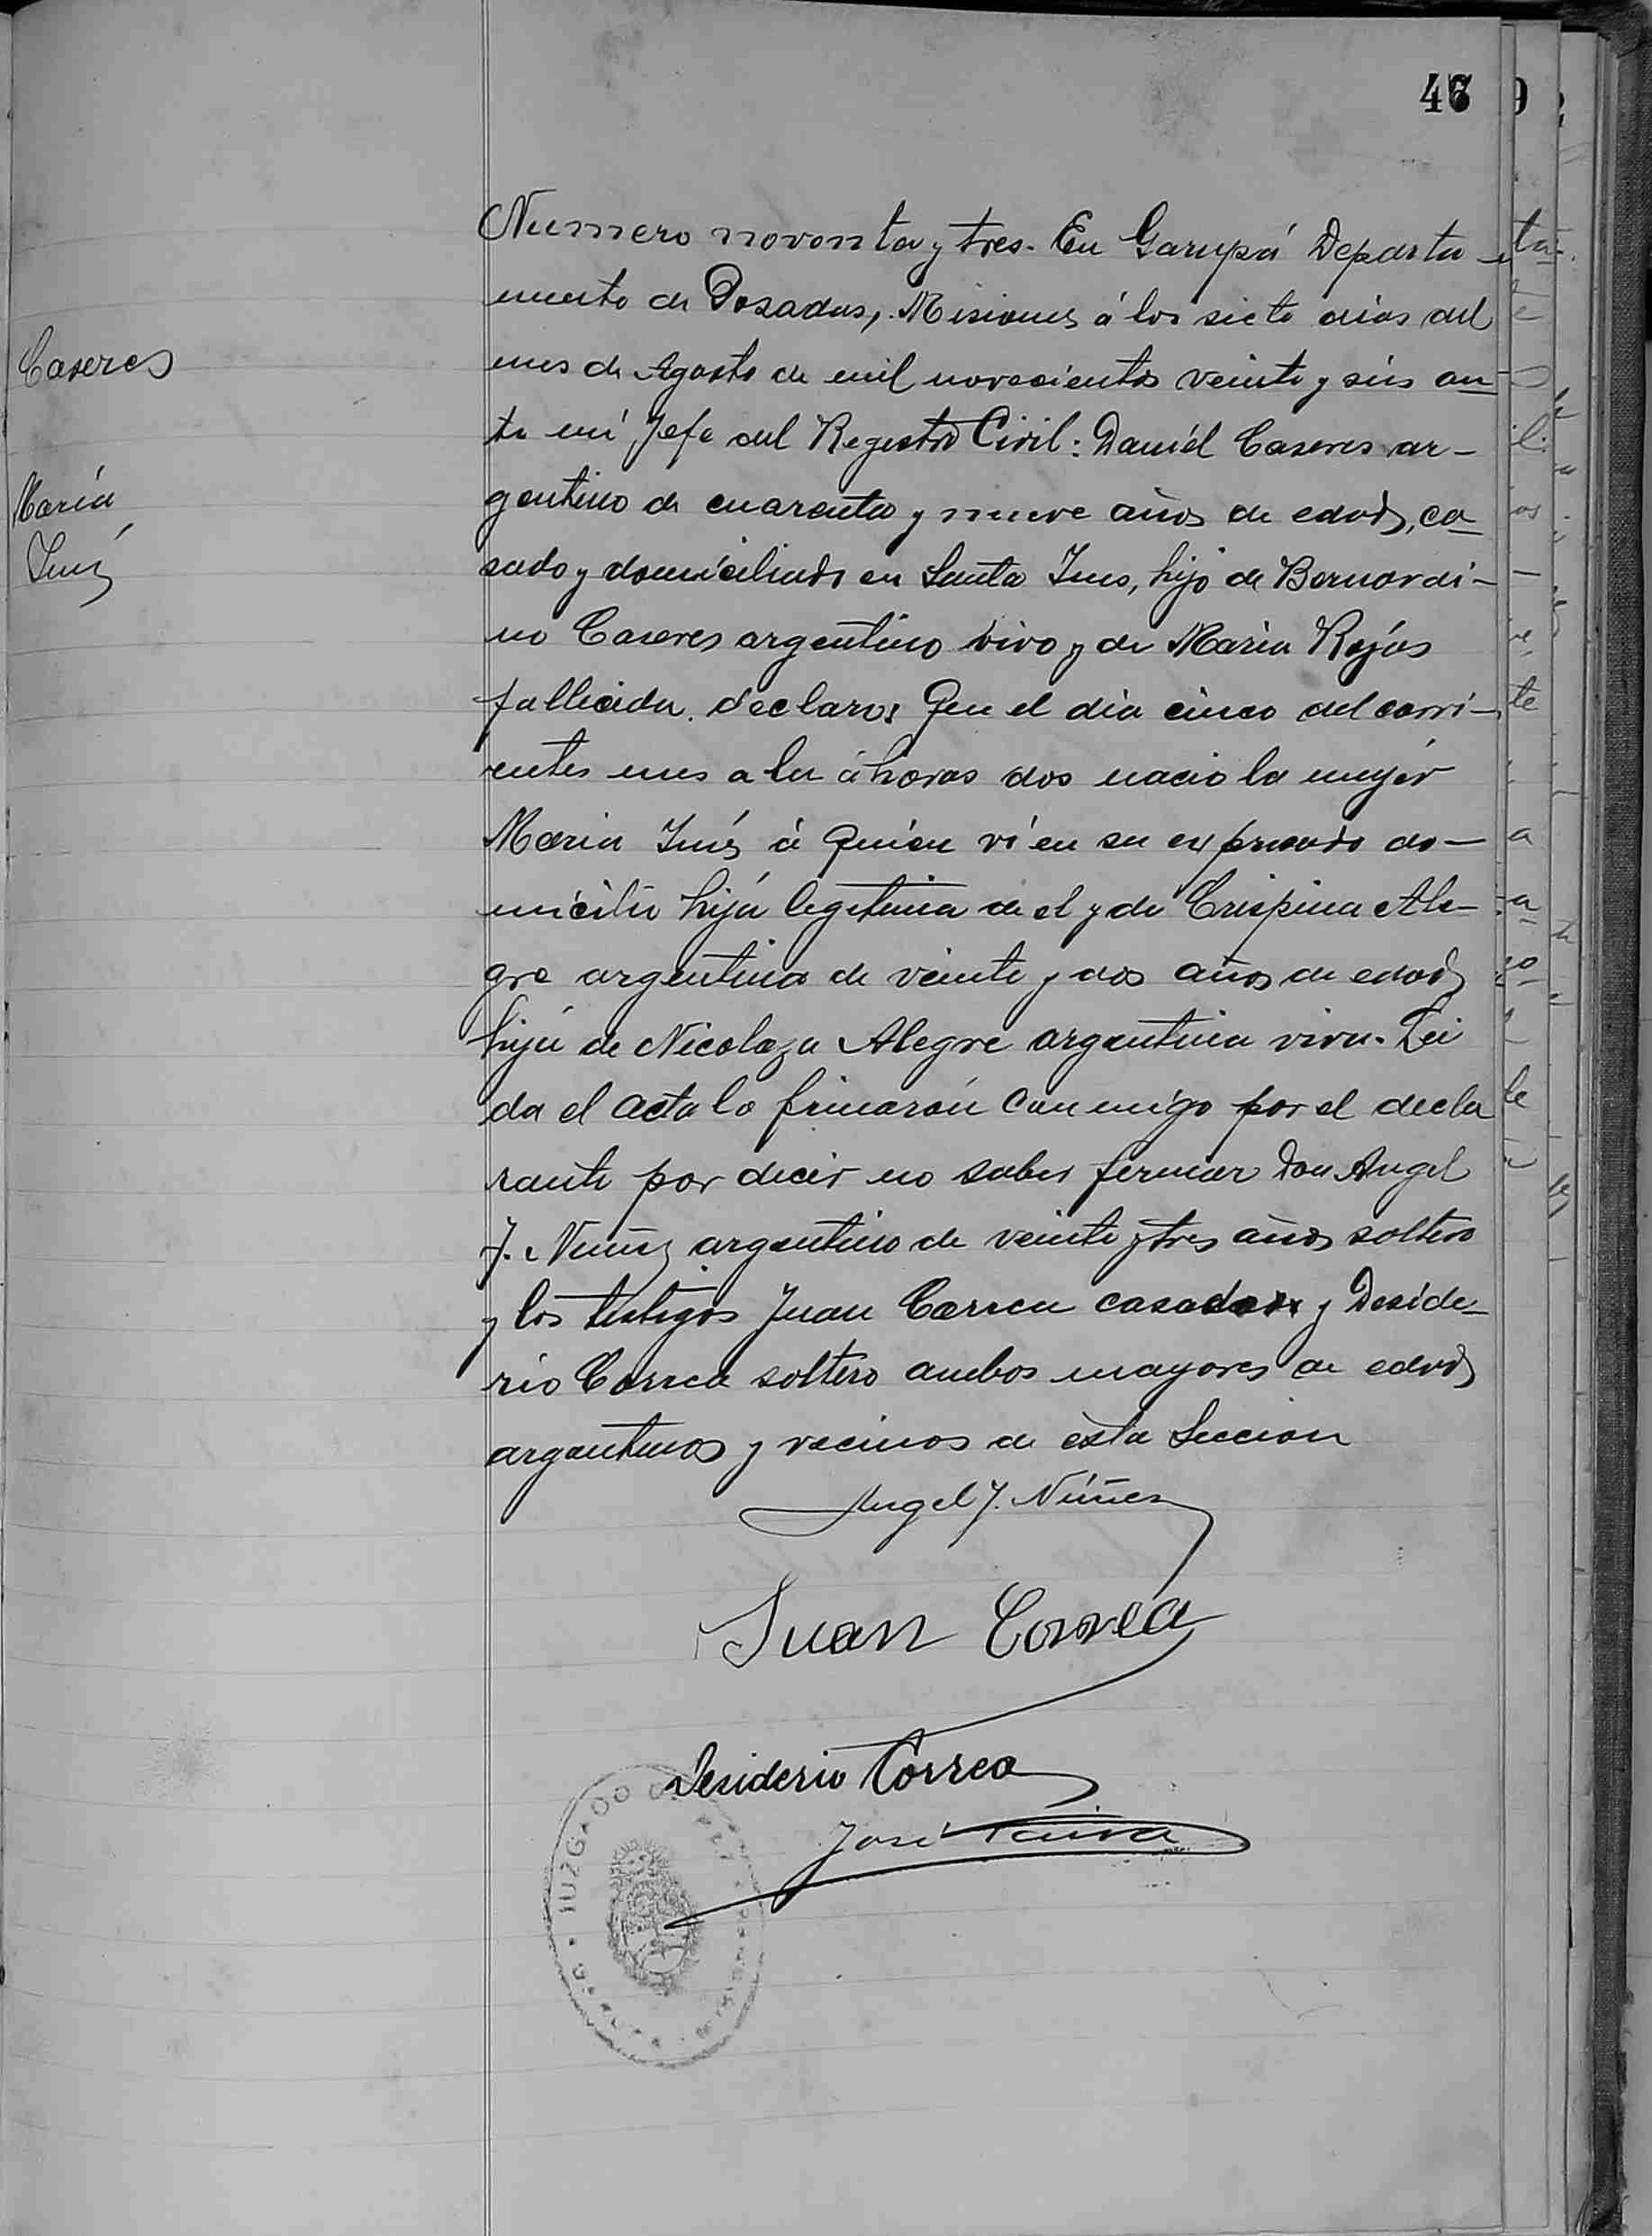 47
Numero noventa y tres. En Garupá Departa
mento de Posadas, Misiones á los siete dias del
Caseres
mes de Agosto de mil novecientos veinte y seis an
te mí Jefe del Registro Civil: Daniél Caseres ar-
María
gentino de cuarenta y nueve años de edad, ca
Inés
sado y domiciliado en Santa Ines, hijo de Bernardi-
no Caseres argentino vivo y de Maria Rojas
fallicida. declaro: Qeu el dia cinco del corri-
entes mes a la á horas dos nacio la mujér
Maria Inés á quién ví en su expresado do-
micilio hija legitima de el y de Crispina Ale-
gre argentina de veinte y dos años de edad
hija de Nicolaza Alegre argentina viva. Lei
da el acta lo frimarón conmigo por el decla
rante por decir no saber fermar Don Angel
J. Nuñez argentino de veinte y tres años soltero
y los testigos Juan Correa casado y Deside-
rio Correa soltero ambos mayores de edad
argentinos y vecinos de ésta Seccion
Angel J. Núñez
Juan Correa
Desiderio Correa
José Paiva
JUZGADO